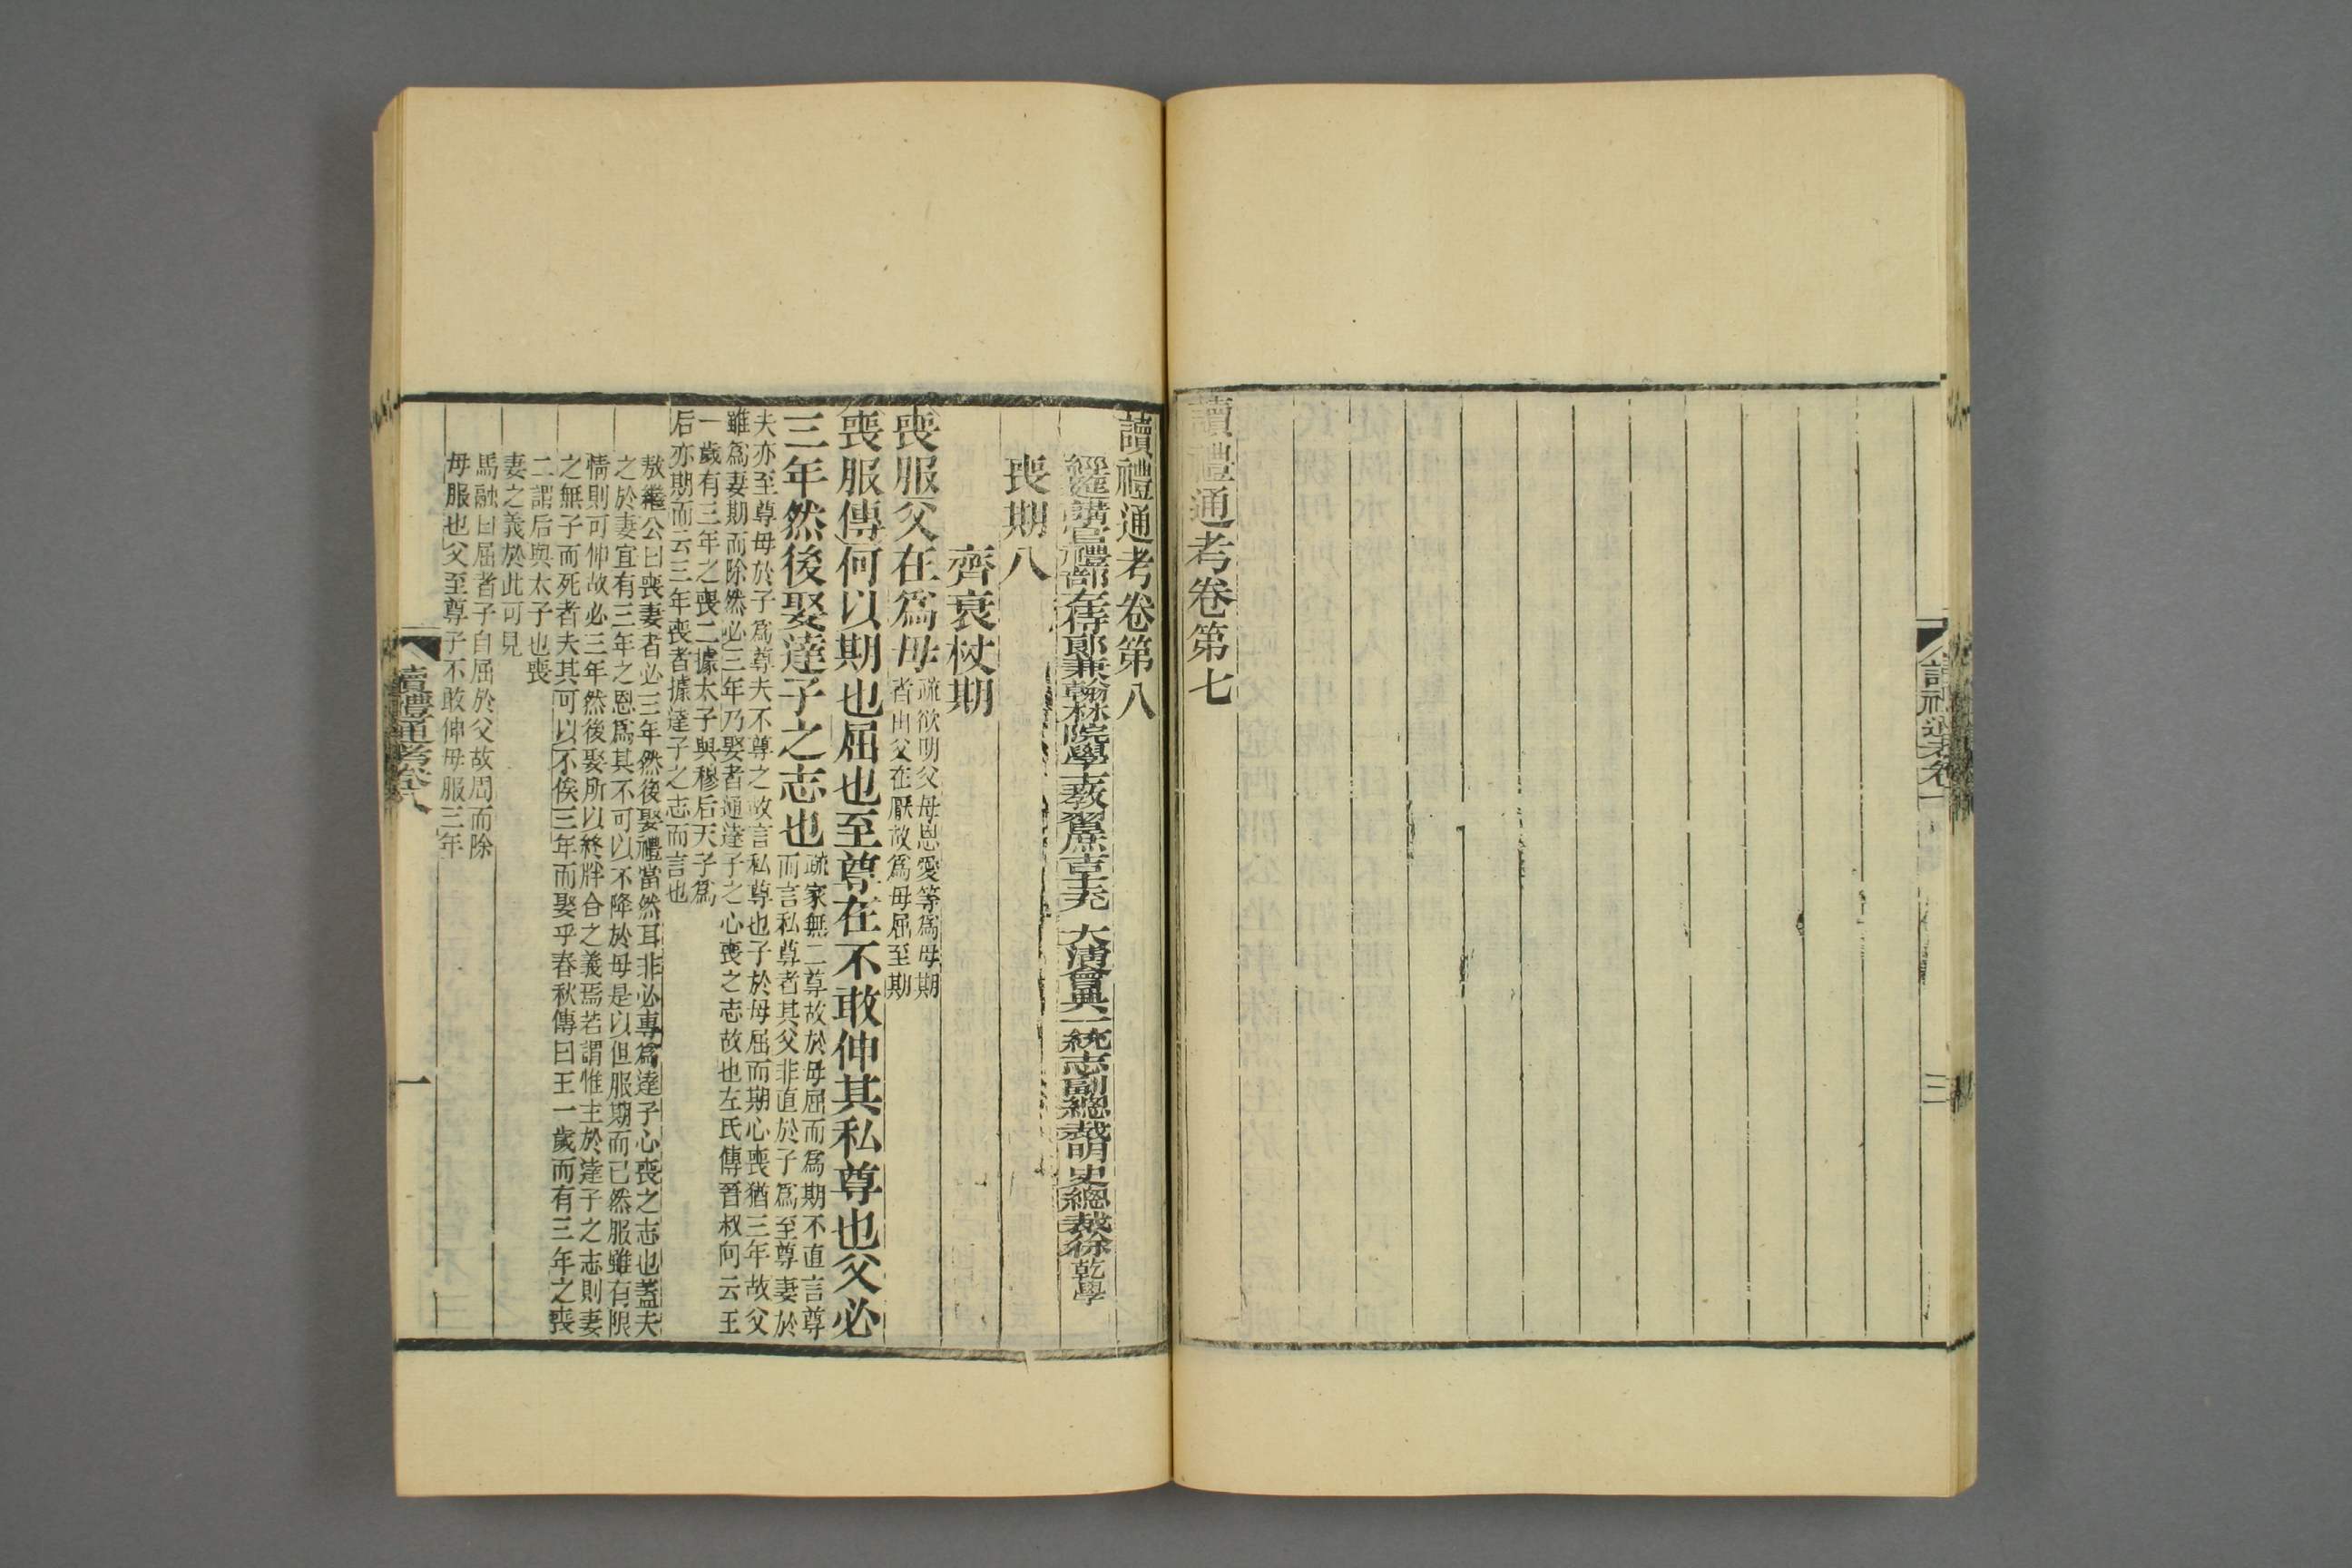 讀禮通考卷第七
讀禮通考卷第八
經筵講官禮部左侍郎兼翰林院學士教習庶吉士充 大清會典一統志副總裁明史總裁徐乾學
喪期八
齊衰杖期
喪服父在爲母
疏欲明父母恩愛等爲母期
者由父在厭故爲母屈至期
喪服傳何以期也屈也至尊在不敢伸其私尊也父必
三年然後娶達子之志也
疏家無二尊故於母屈而爲期不直言尊
而言私尊者其父非直於子爲至尊妻於
夫亦至尊母於子爲尊夫不尊之故言私尊也子於母屈而期心喪猶三年故父
雖爲妻期而除然必三年乃娶者通達子之心喪之志故也左氏傳晉叔向云王
一歲有三年之喪二據太子與穆后天子爲
后亦期而云三年喪者據達子之志而言也
敖繼公曰喪妻者必三年然後娶禮當然耳非必專爲達子心喪之志也蓋夫
之於妻宜有三年之恩爲其不可以不降於母是以但服期而已然服雖有限
情則可伸故必三年然後娶所以終牉合之義焉若謂惟主於達子之志則妻
之無子而死者夫其可以不俟三年而娶乎春秋傳曰王一歲而有三年之喪
二謂后與太子也喪
妻之義於此可見
馬融曰屈者子自屈於父故周而除
母服也父至尊子不敢伸母服三年
讀禮通考卷八
一